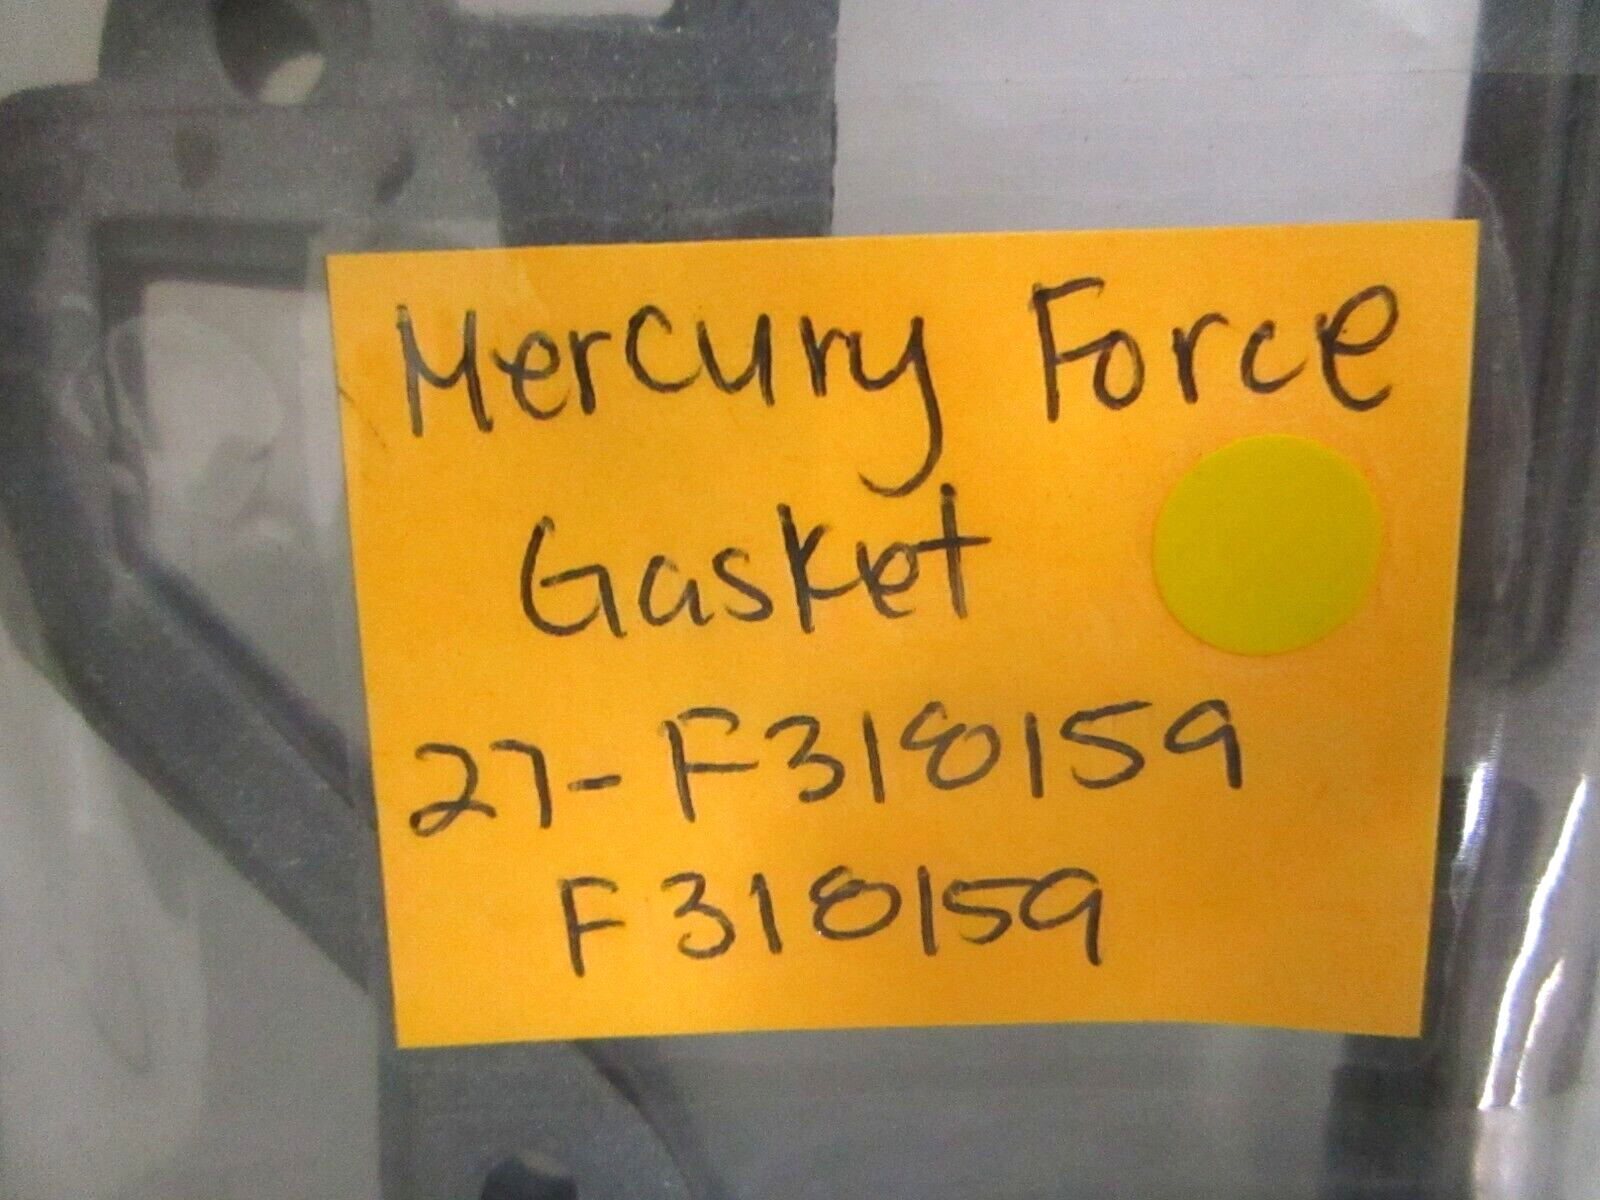 Mercury Force
Gasket
27-F318159
F318159